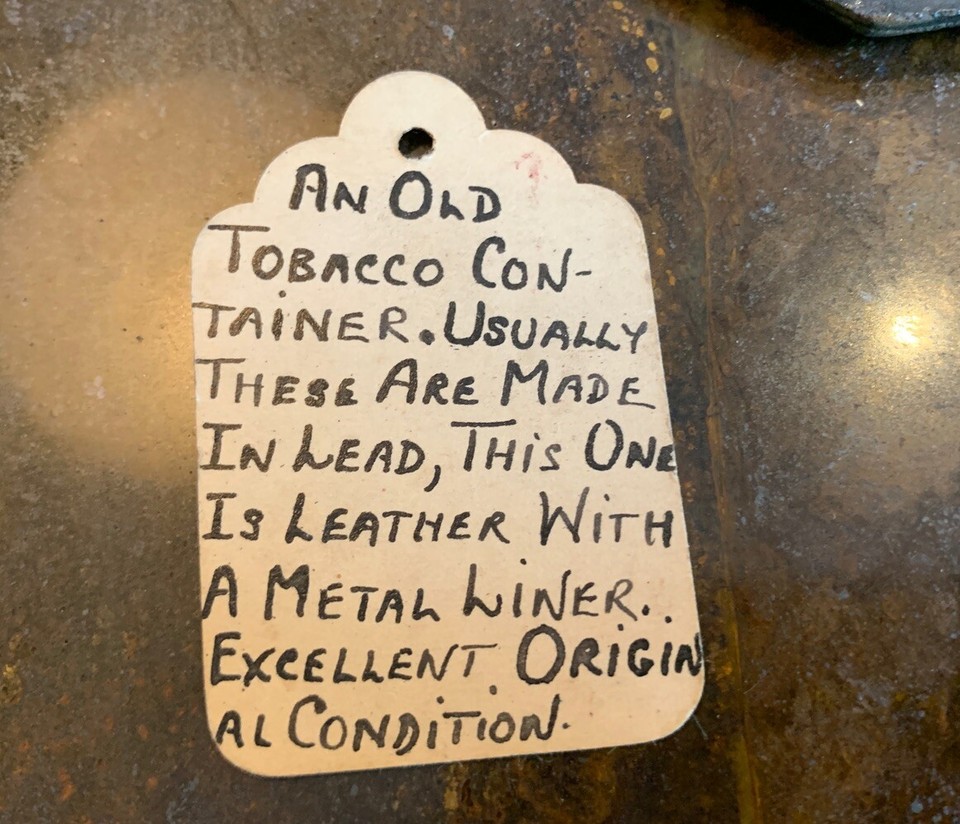 An Old
Tobacco Con-
tainer. Usually
These Are Made
In Lead, This One
Is Leather With
A Metal Liner.
Excellent Origin
al Condition.